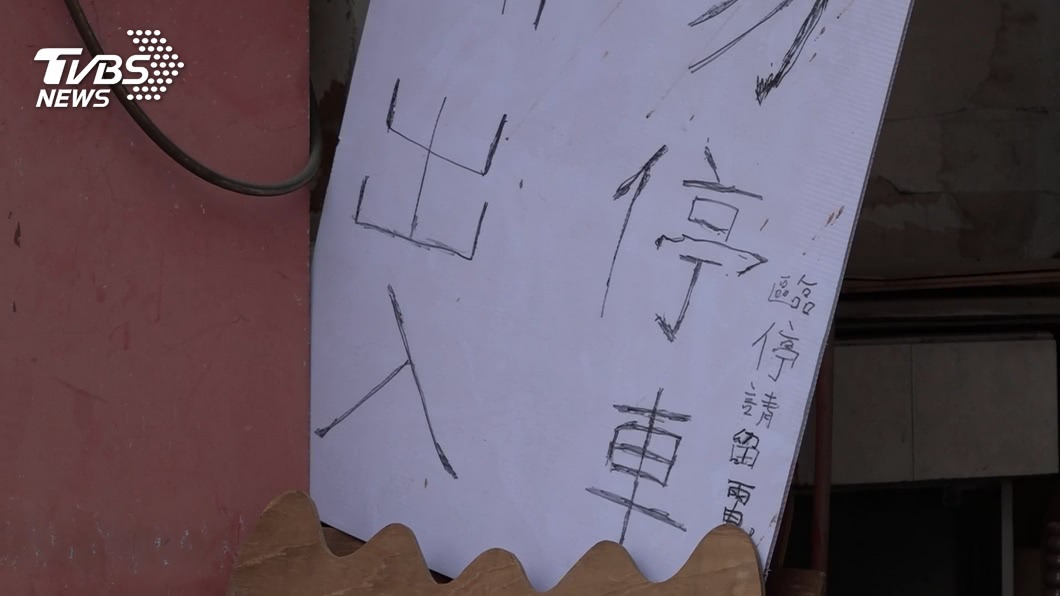 TVBS
NEWS
勿停車
臨停請留電
出入